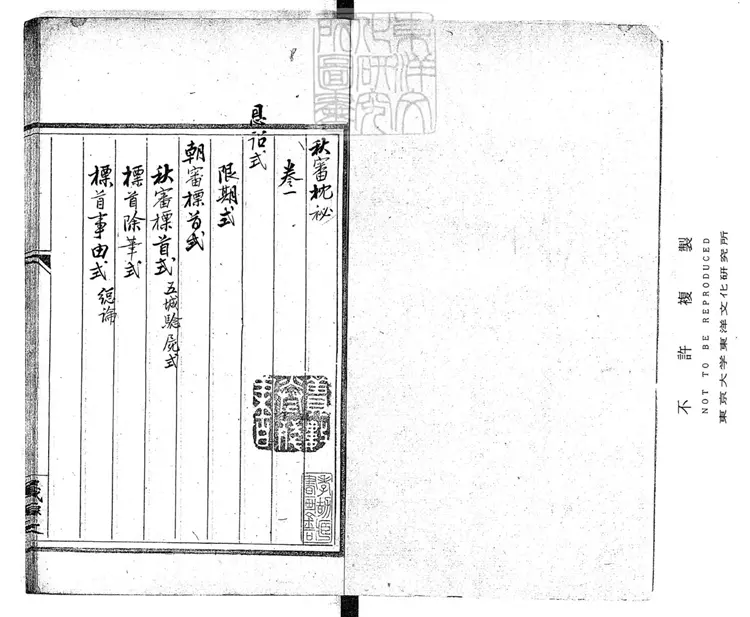 秋審枕秘
卷一
恩詔式
限期式
朝審標首式
秋審標首式 五城驗屍式
標首除筆式
標首事由式 總論
東洋文化研究所圖書
不許複製
NOT TO BE REPRODUCED
東京大学東洋文化研究所